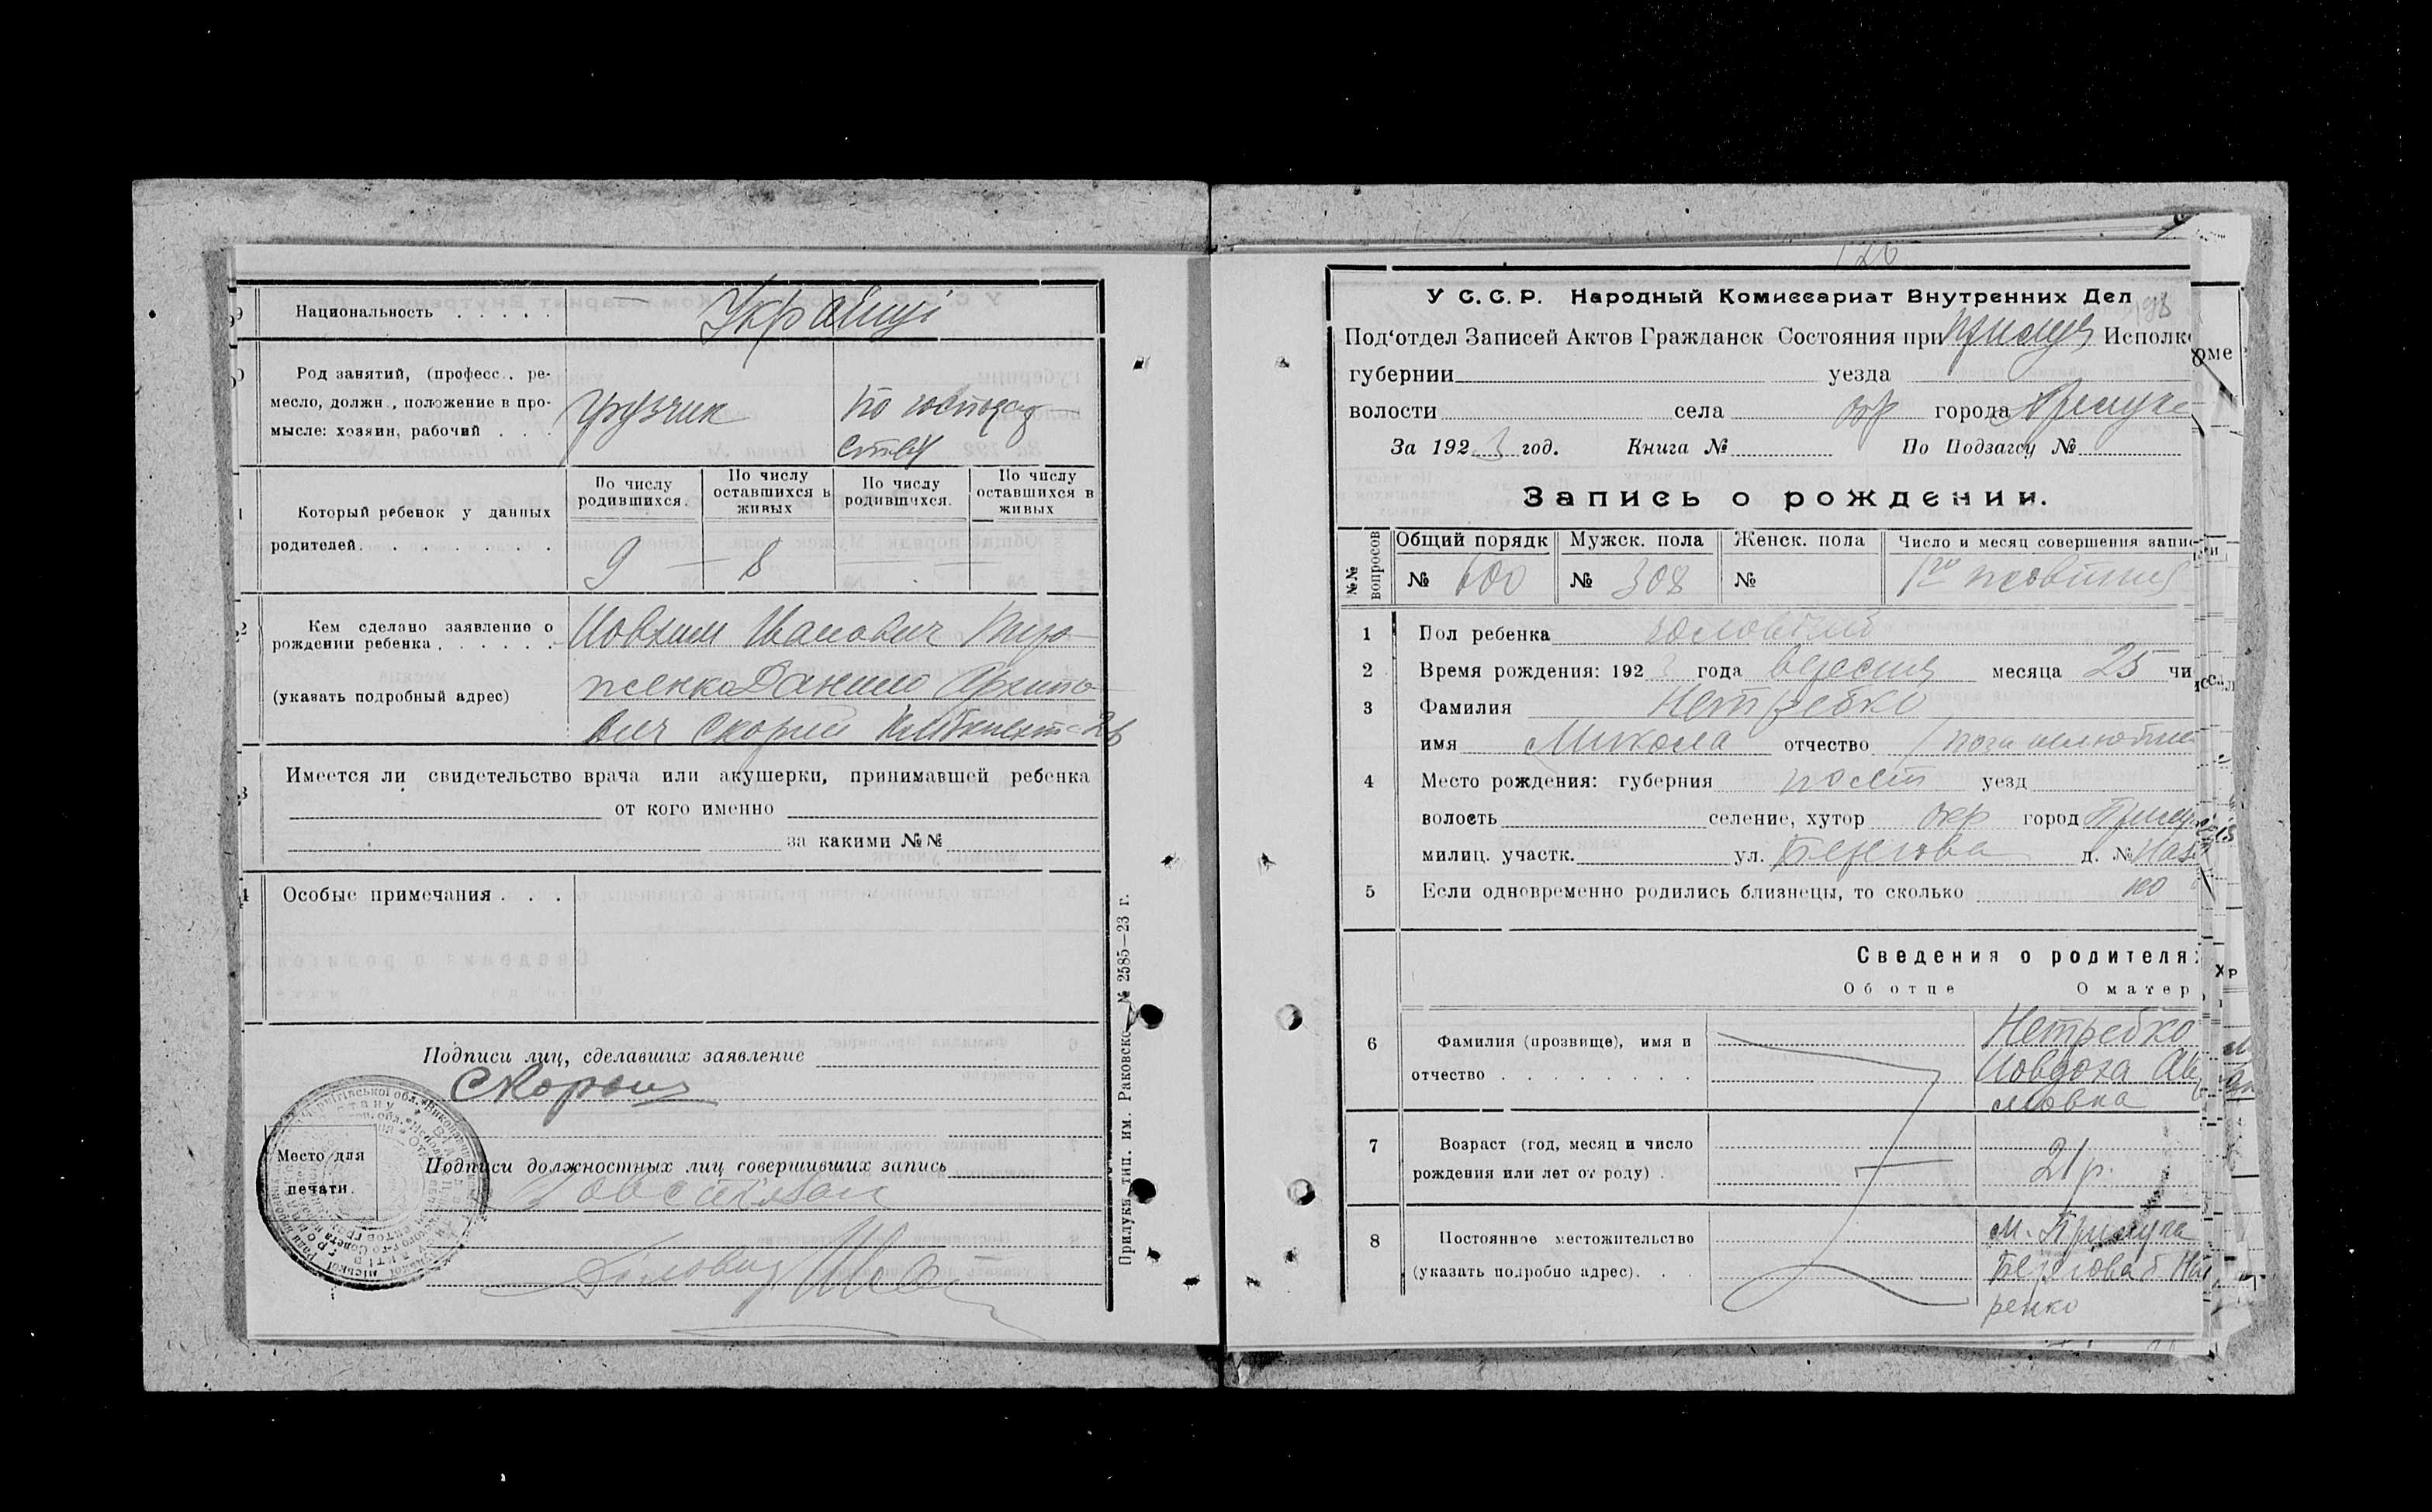 Национальность . . . . . Українці
Род занятий, (професс., ре-
месло, должн., положение в про-
мысле: хозяин, рабочий . . .
грузчик
по господар
ству
Который ребенок у данных
родителей. . . . . . .
По числу родившихся.
По числу оставшихся в живых
По числу родившихся.
По числу оставшихся в живых
9 — 8
Кем сделано заявление о
рождении ребенка . . . . . .
(указать подробный адрес)
Иовхим Иванович
Данило Архипо-
вич Скорий
Имеется ли свидетельство врача или акушерки, принимавшей ребенка
от кого именно
за какими №№
Особые примечания . . .
Подписи лиц, сделавших заявление
Скорий
Место для
печати.
Подписи должностных лиц совершивших запись
Прилуки, тип. им. Раковско № 2585—23 г.
126
У С. С. Р. Народный Комиссариат Внутренних Дел
198
Под'отдел Записей Актов Гражданск Состояния при Прилуц Исполк
губернии уезда
волости села окр города Прилуки
За 1923 год. Книга № По Подзагсу №
Запись о рождении.
№№ вопросов
Общий порядк № 600
Мужск. пола № 308
Женск. пола №
Число и месяц совершения запи
1го жовтня
1 Пол ребенка чоловічий
2 Время рождения: 1923 года вересня месяца 25 чи
3 Фамилия Нетребко
имя Микола отчество / поза шлюбне
4 Место рождения: губерния полт уезд
волость селение, хутор окр город Прилу
милиц. участк. ул. Берегова д. № Наз
5 Если одновременно родились близнецы, то сколько но
Сведения о родителя
Об отце О матер
6 Фамилия (прозвище), имя и
отчество . . . . . . . . .
Нетребко
Иовдоха Ав
мовна
7 Возраст (год, месяц и число
рождения или лет от роду) .
21 р.
8 Постоянное местожительство
(указать подробно адрес). .
м. Прилука
Берегова б На
ренко